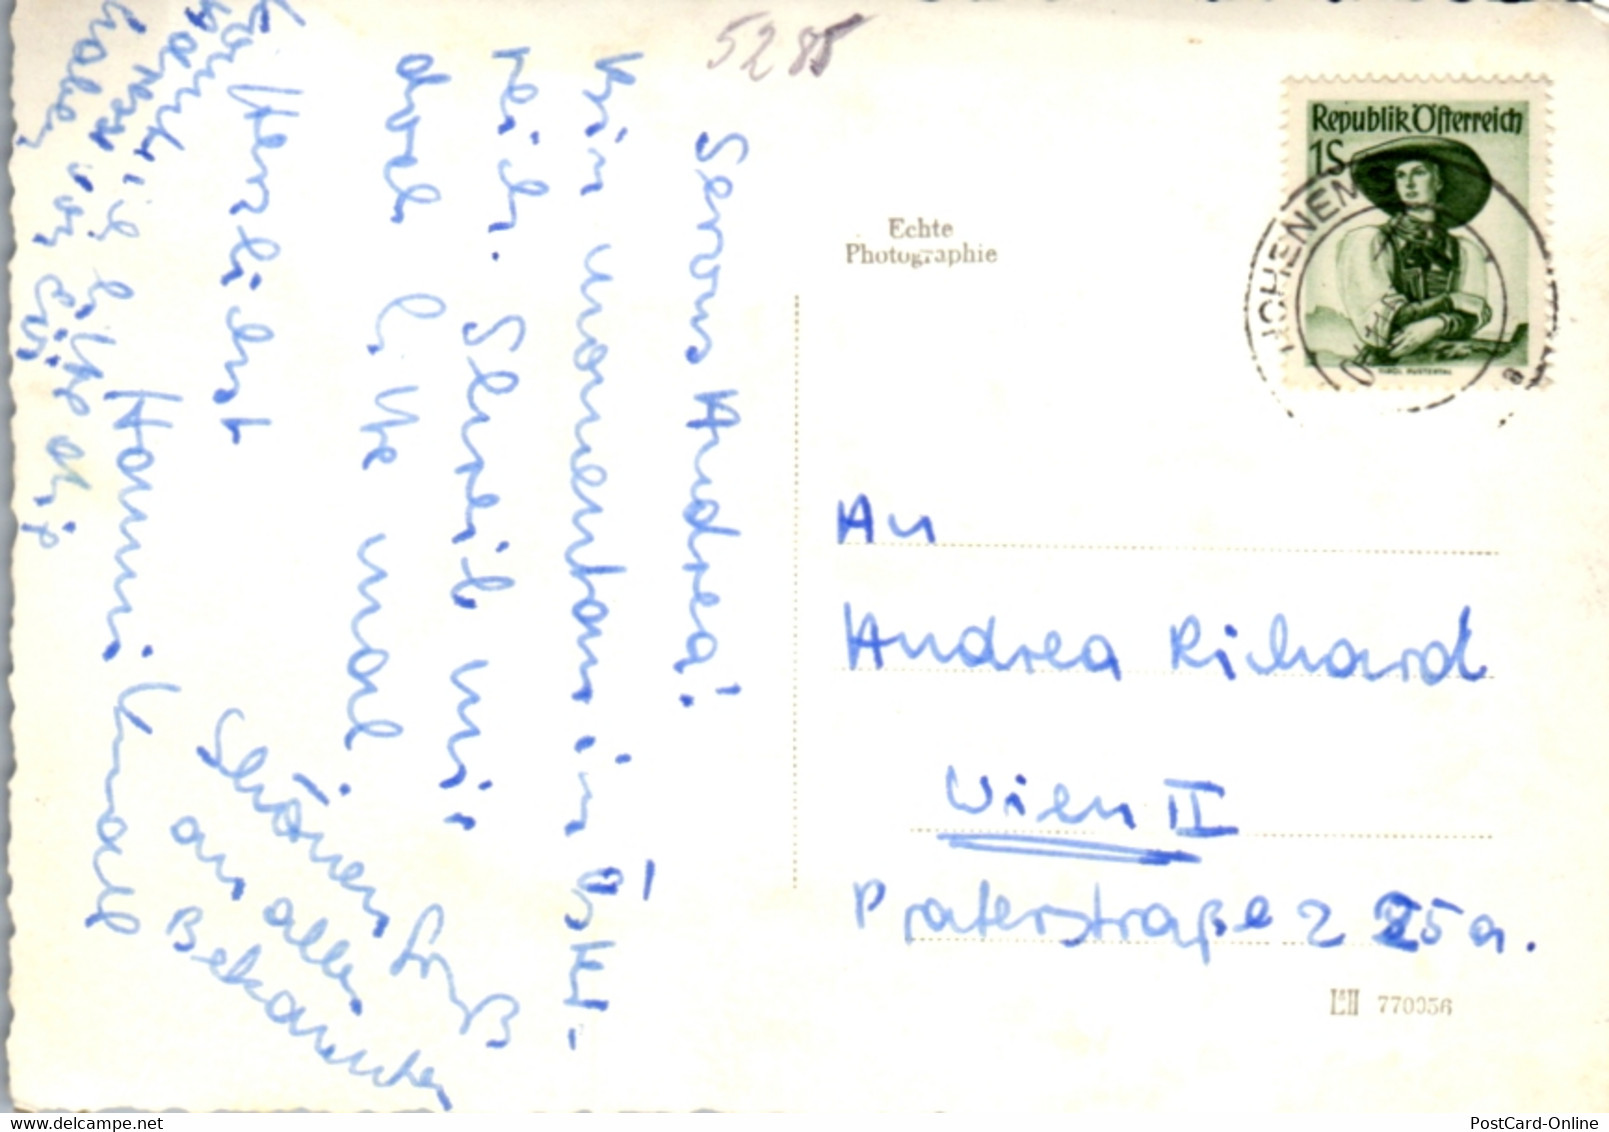 5285
Servus Andrea!
Bin momentan in Öster-
reich. Schreib mir
doch bitte mal
Herzlichst
Hanni
Schönen Gruß
an alle
Bekannten
Echte
Photographie
Republik Österreich
1S
TIROL PUSTERTAL
HOHENEM
a
An
Andrea Richard
Wien II
Praterstraße 25a.
770956
PostCard-Online.net
PostCard-Online